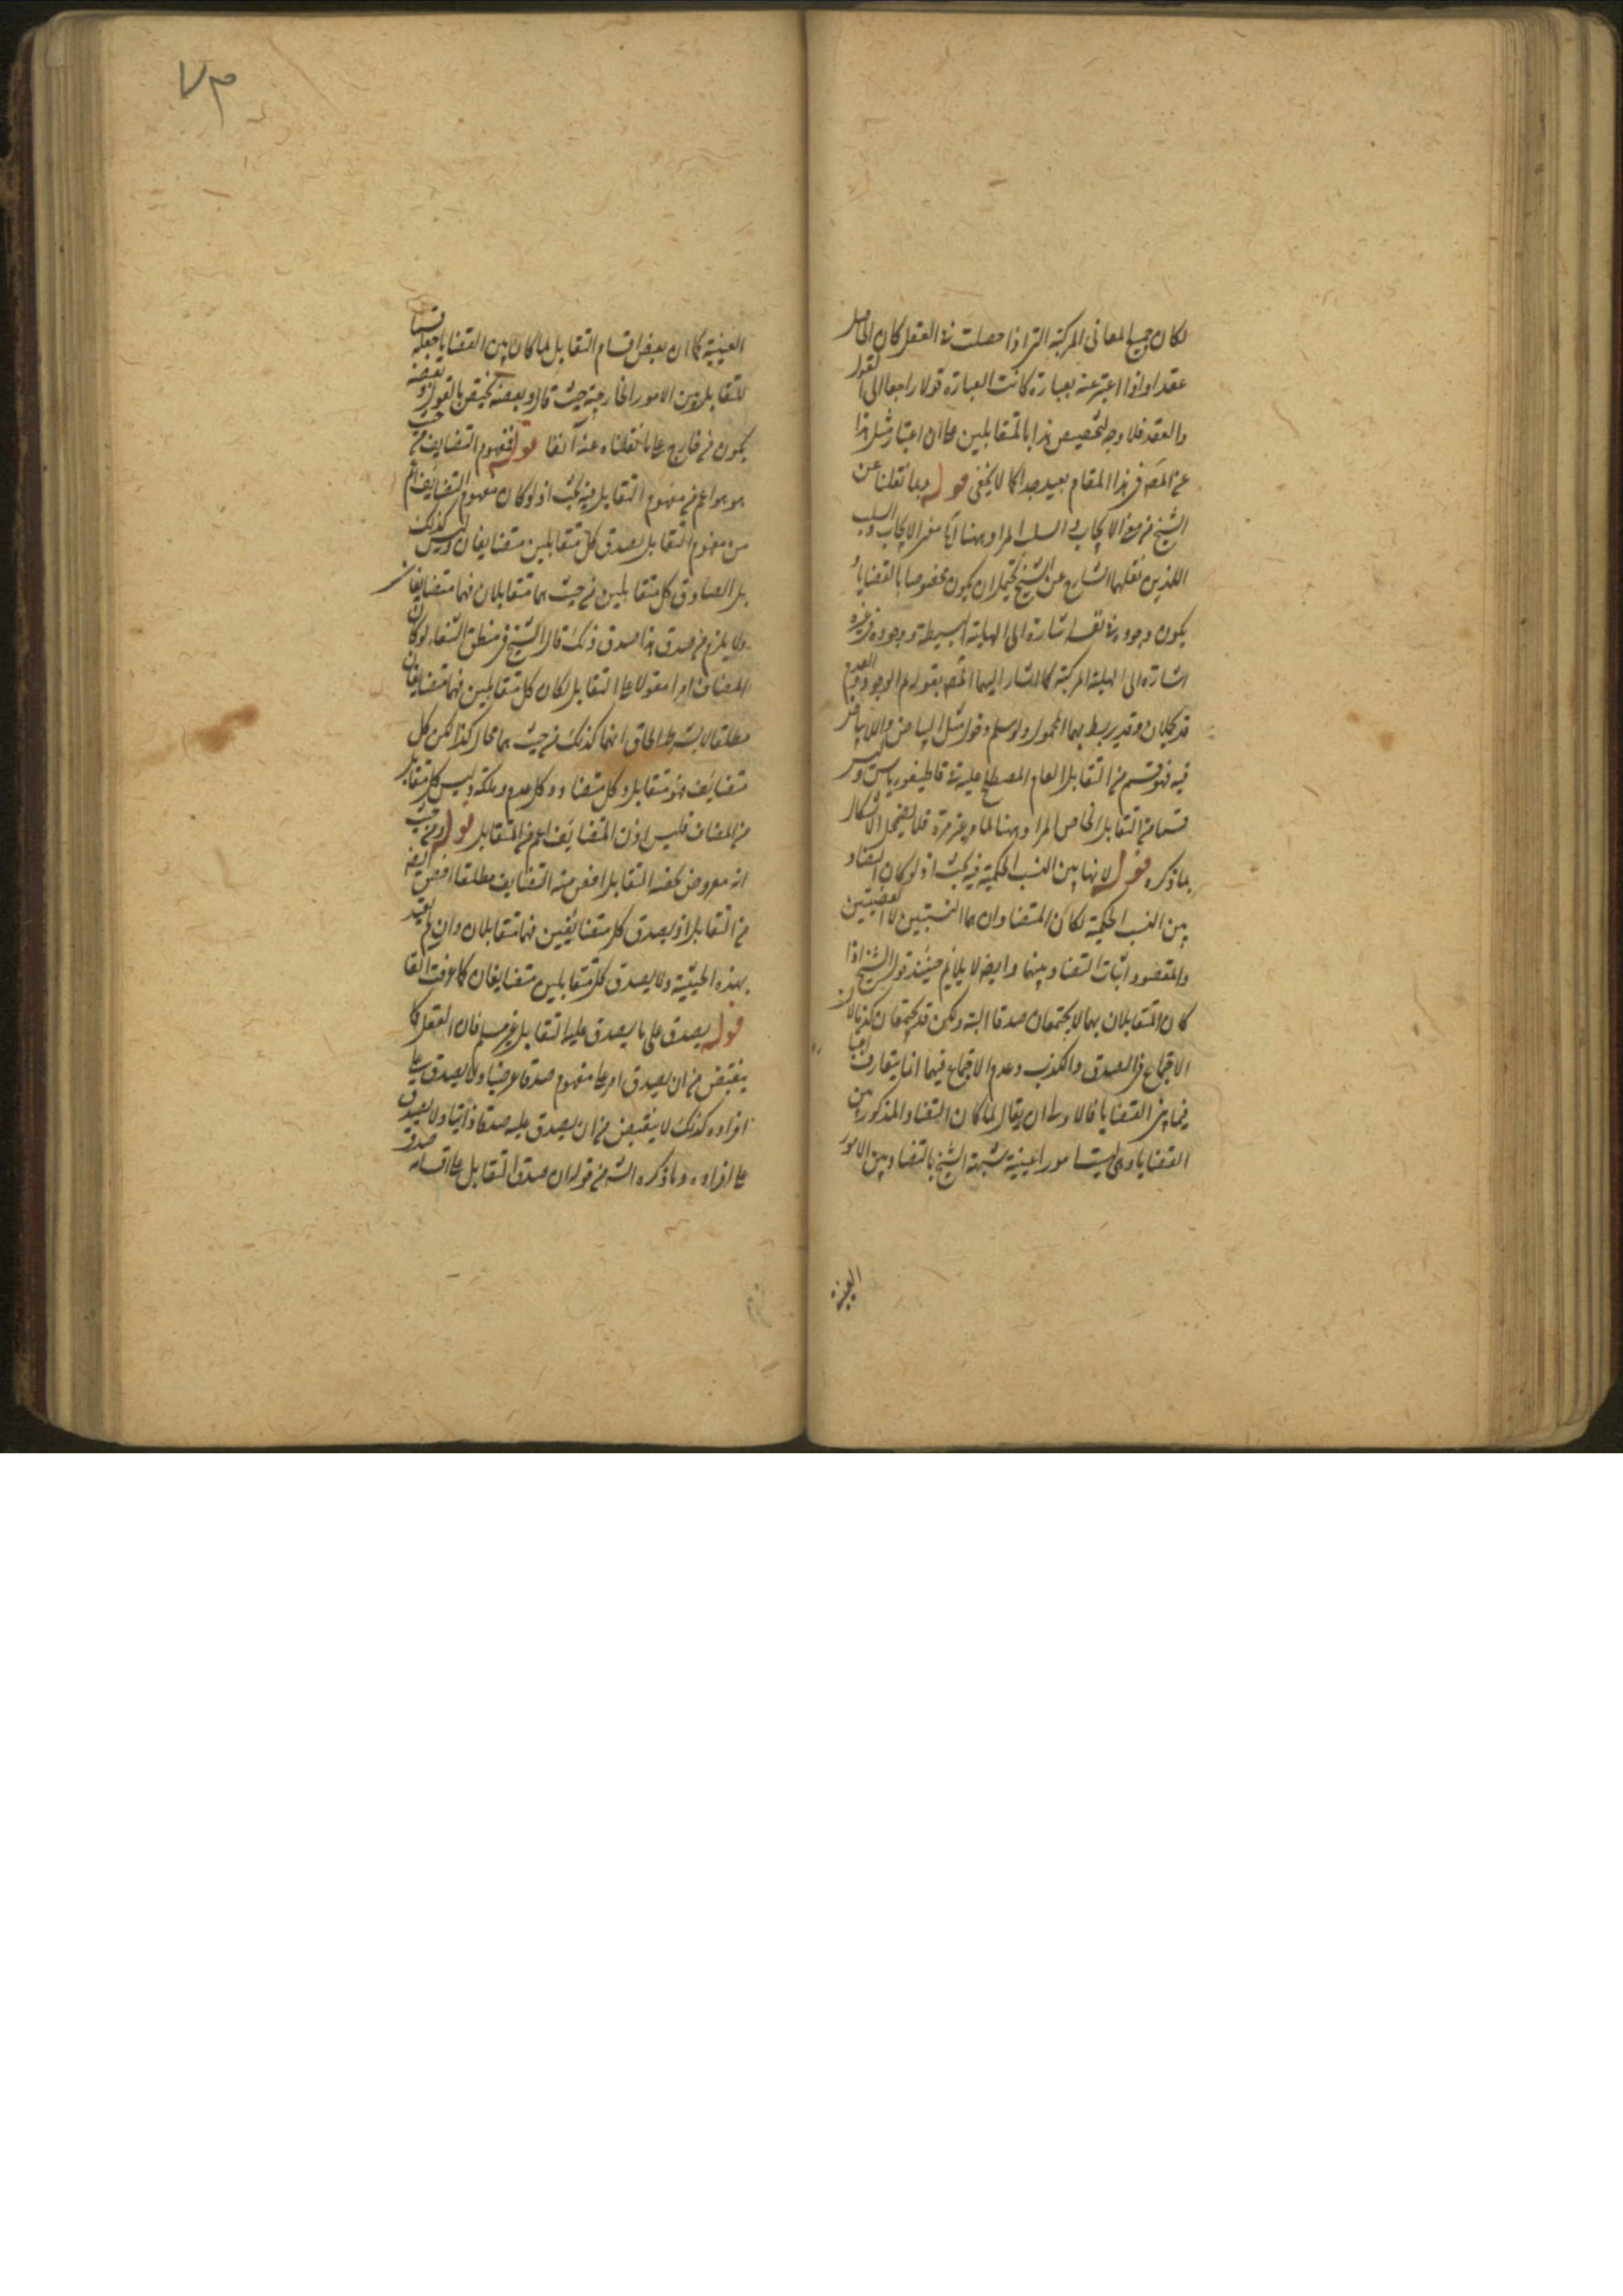 لكان جميع المعاني المركبة التي اذا حصلت في العقل كان الحاصل
عقدا واذا اعتبر عنه بعبارة كانت العبارة قولا راجعا الى القول
والعقد فلا وجه لتخصيص هذا بالمتقابلين على ان اعتبار مثل هذا
عن المص في هذا المقام بعيد جدا كما لا يخفى قوله وبما نقلنا عن
الشيخ من معنى الايجاب والسلب المراد بهنا اه معنى الايجاب والسلب
اللذين نقلهما الشارح عن الشيخ يحتمل ان يكون مخصوصا بالقضايا
يكون وجوده في نفسه اشارة الى الهلية البسيطة ووجوده في غيره
اشارة الى الهلية المركبة كما اشار اليهما المص بقوله ثم الوجود والعدم
قد يحملان وقد يربط بهما المحمول ولو سلم فقول مثل البياض واللابياض
فيه فهو قسم من التقابل العام المصطلح عليه في قاطيغورياس وليس
قسما من التقابل الخاص المراد ههنا لما مر غير مرة فلا يضمحل الاشكال
بما ذكره قوله لانها بين النسب الحكمية فيه بحث اذ لو كان التضاد
بين النسب الحكمية لكان المتضادان هما النسبتين لا القضيتين
والمقصود اثبات التضاد بينهما وايضا لا يلايم حينئذ قول الشيخ اذا
كان المتقابلان بهما لا يجتمعان صدقا البتة ولكن قد يجتمعان كذبا لان
الاجتماع في الصدق والكذب وعدم الاجتماع فيهما انما يتعارف
فيما بين القضايا فالاولى ان يقال لما كان التضاد المذكور بين
القضايا وهي ليست امورا عينية شبهه الشيخ بالتضاد بين الامور
العينية
٧٣
العينية كما ان بعض اقسام التقابل لما كان بين القضايا جعله قسما
للتقابل بين الامور الخارجية حيث قال وبعضه يحقق بالقول وبعضه
يكون في خارج على ما نقلناه عنه آنفا قوله فمفهوم التضايف من حيث
هو هو اعم من مفهوم التقابل فيه بحث اذ لو كان مفهوم التضايف اعم
من مفهوم التقابل يصدق كل متقابلين متضايفان وليس كذلك
بل الصادق كل متقابلين من حيث هما متقابلان فهما متضايفان
ولا يلزم من صدق هذا صدق ذلك قال الشيخ في منطق الشفاء لو كان
المضاف امرا مقولا على التقابل لكان كل متقابلين فهما متضايفان
مطلقا لا بشرط الحاق انهما كذلك من حيث هما محال كذا لكن كل
متضايف فهو متقابل وكل متضاد وكل عدم وملكة وليس كل متقابل
من المضاف فليس اذن المتضايف اعم من المتقابل قوله ومن حيث
انه معروض لحصة التقابل اخص منه التضايف مطلقا اخص ايضا
من التقابل اذ يصدق كل متضايفين فهما متقابلان وان لم يقيد
بهذه الحيثية ولا يصدق كل متقابلين متضايفان كما عرفت آنفا
قوله يصدق على ما يصدق عليه التقابل غير مسلم فان العقل كما
ينقبض من ان يصدق امر على مفهوم صدقا عرضيا ولا يصدق على
افراده كذلك لا ينقبض من ان يصدق عليه صدقا ذاتيا ولا يصدق
على افراده وما ذكره الش من قوله ان صدق التقابل على اقسامه صدق